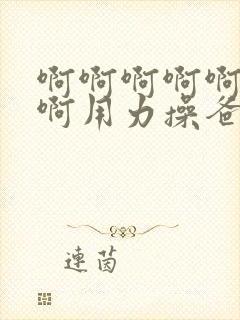 啊啊啊啊啊
啊用力操爸
連茵